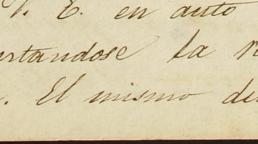 E. en auto
rtandose la
. El mismo de